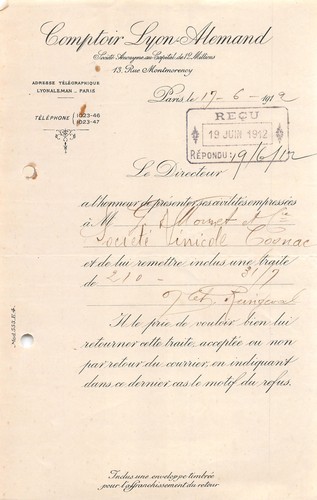 Comptoir Lyon-Alemand
Société Anonyme au Capital de 12 Millions
13, Rue Montmorency
ADRESSE TÉLÉGRAPHIQUE
LYONALEMAN _ PARIS
TÉLÉPHONE 1023-46
1023-47
Paris, le 17 - 6 - 1912
REÇU
19 JUIN 1912
RÉPONDU: 19/6/12
Le Directeur
a l'honneur de présenter ses civilités empressées
à M & Cie
Société Vinicole Cognac
et de lui remettre inclus une traite
de 210 - 31/7
Il le prie de vouloir bien lui
retourner cette traite acceptée ou non
par retour du courrier, en indiquant
dans ce dernier cas le motif du refus.
Mod. 353. E.4.
Inclus une enveloppe timbrée
pour l'affranchissement du retour